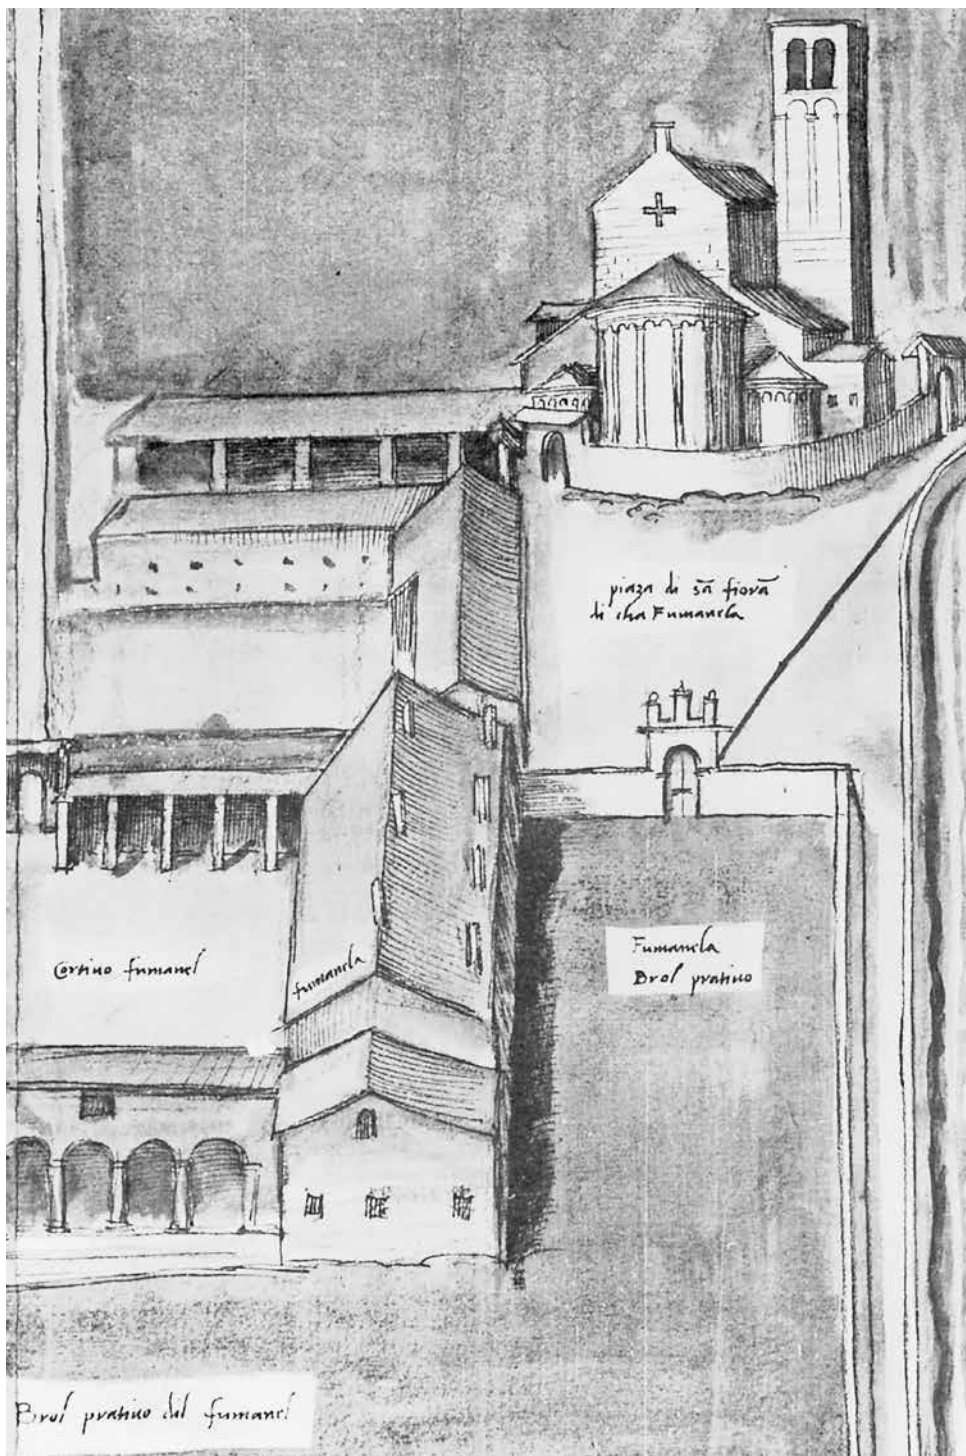 piaza di sã fiorã
di cha Fumanela
Cortivo fumanel
fumanela
Fumanela
Brol prativo
Brol prativo dil fumanel